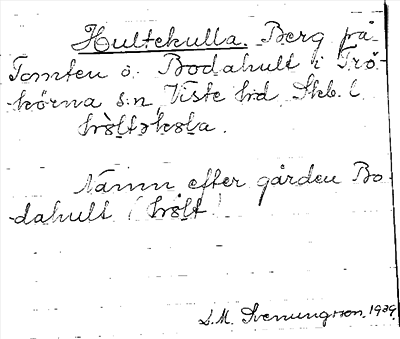 Hultekulla. Berg på
Tomten ö. Bodahult i Trö-
körna s:n, Viste hd, Skb. l.
Namn efter gården Bo-
dahult
S.M. Svenungsson, 1939.